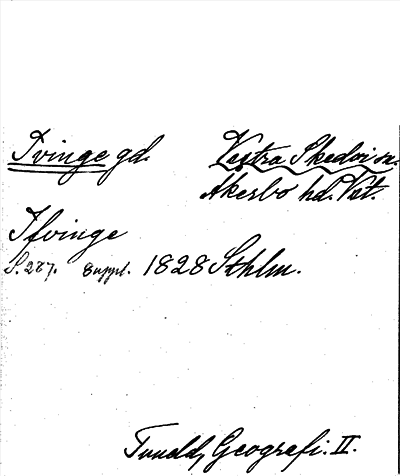 Tvinge gd. Västra Skedvi sn.
Åkerbo hd. Vst.
Tfvinge
S. 287. Suppl. 1828 Sthlm.
Tuneld, Geografi. II.